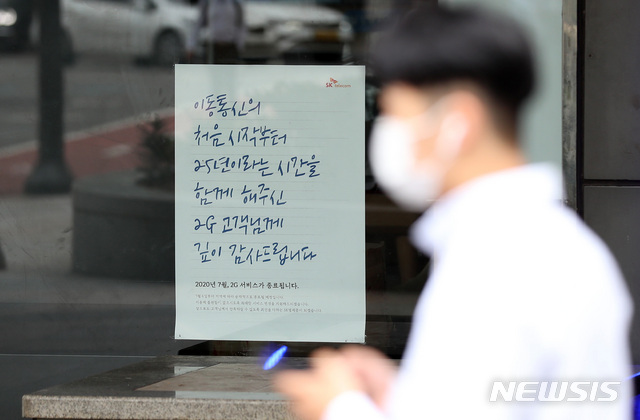 SK telecom
이동통신의
처음 시작부터
25년이라는 시간을
함께 해주신
2G 고객님께
깊이 감사드립니다
2020년 7월, 2G 서비스가 종료됩니다.
NEWSIS